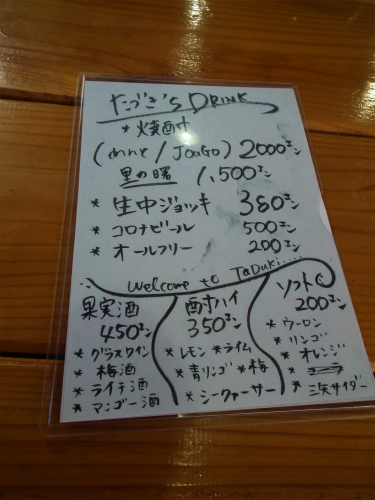 たづき's DRINK
* 焼酎
(れんと / JOUGO) 2000エン
里の曙 1,500エン
* 生中ジョッキ 380エン
* コロナビール 500エン
* オールフリー 200エン
welcome to TaDuki....
果実酒
450エン
* グラスワイン
* 梅酒
* ライチ酒
* マンゴー酒
酎ハイ
350エン
* レモン * ライム
* 青リンゴ * 梅
* シークァーサー
ソフトD
200エン
* ウーロン
* リンゴ
* オレンジ
* コーラ
* 三矢サイダー